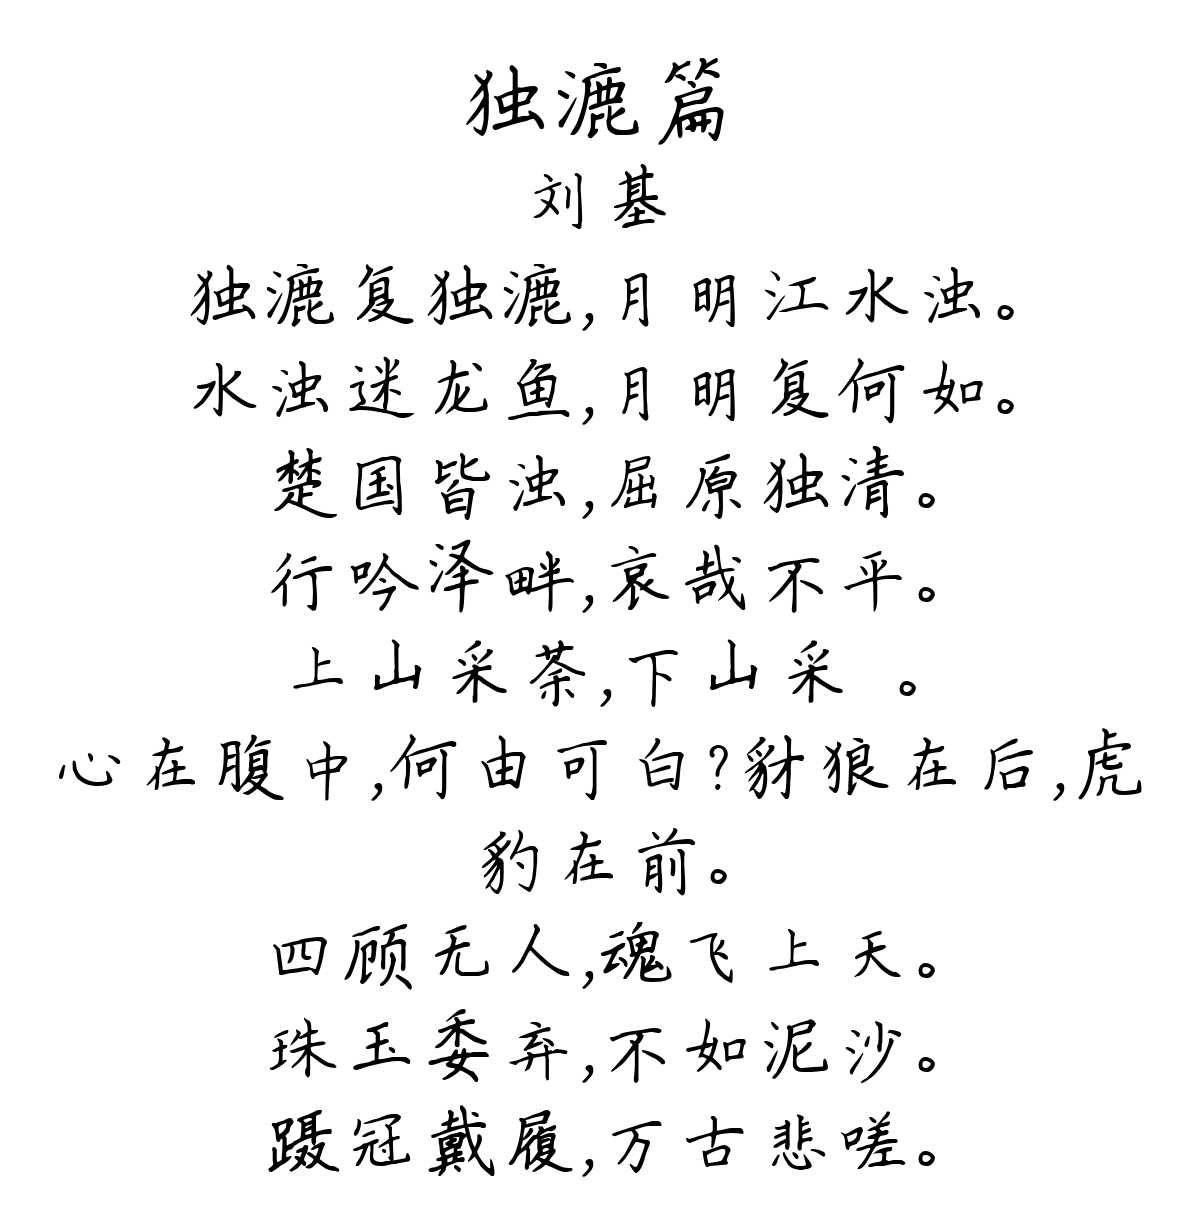 独漉篇
刘基
独漉复独漉,月明江水浊。
水浊迷龙鱼,月明复何如。
楚国皆浊,屈原独清。
行吟泽畔,哀哉不平。
上山采荼,下山采 。
心在腹中,何由可白?豺狼在后,虎
豹在前。
四顾无人,魂飞上天。
珠玉委弃,不如泥沙。
蹑冠戴履,万古悲嗟。